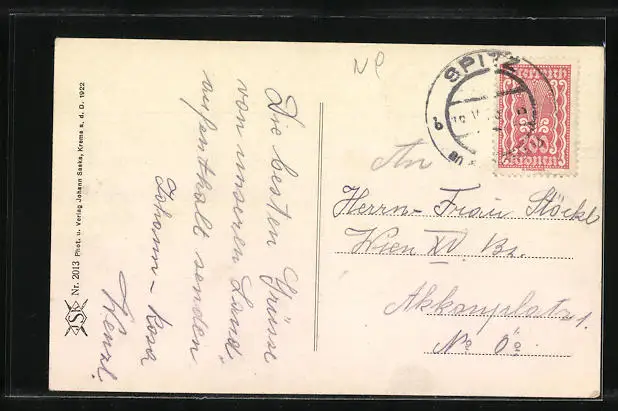 Nr. 2013 Phot. u. Verlag Johann Saska, Krems a. d. D. 1922
Die besten Grüsse
von unseren Land-
aufenthalt senden
Johann - Rosa
SPITZ
b
An
Herrn - Frau Stöckl
Wien XV. Bz.
Akkonplatz
No